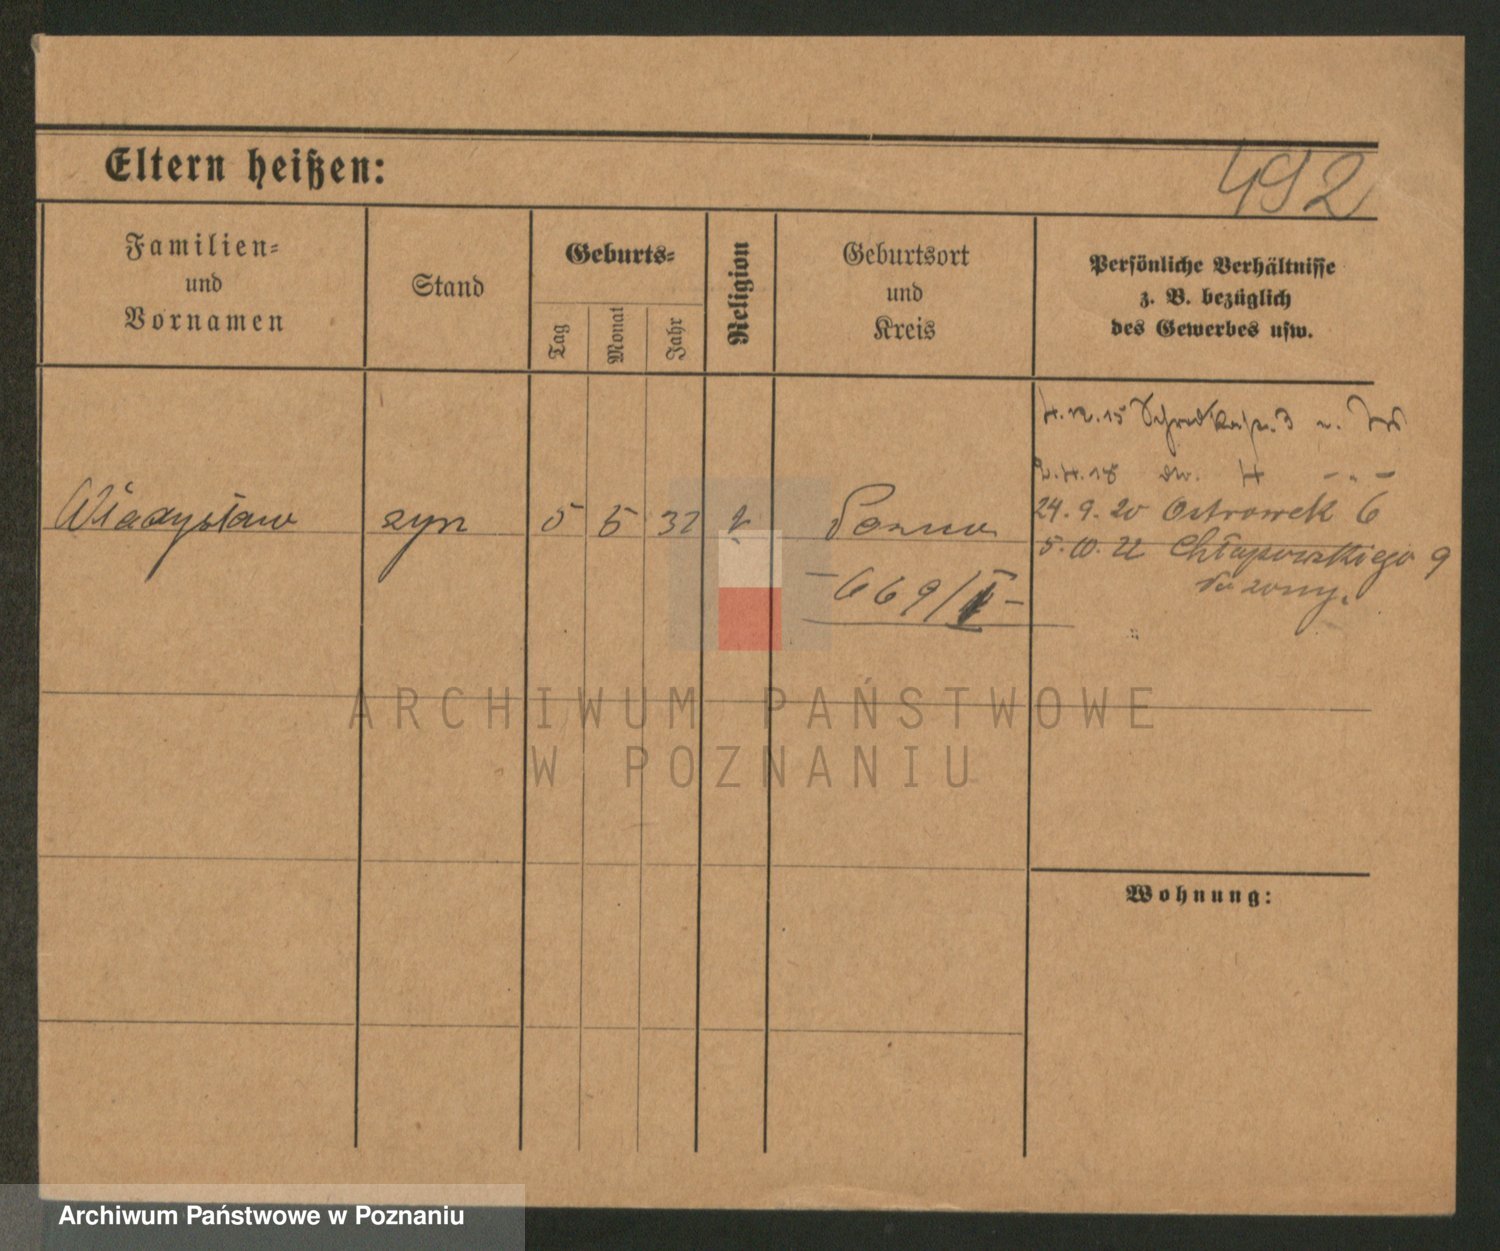 Eltern heißen:
492
Familien-
und
Vornamen
Stand
Geburts-
Tag
Monat
Jahr
Religion
Geburtsort
und
Kreis
Persönliche Verhältnisse
z. B. bezüglich
des Gewerbes usw.
4.12.15 3
2.4.18 4 - " -
24.9.20 Ostrowek 6
Władysław syn 5 5 32
5.10.22 Chłapowskiego 9
- 669/
żony.
ARCHIWUM PAŃSTWOWE
W POZNANIU
Wohnung:
Archiwum Państwowe w Poznaniu